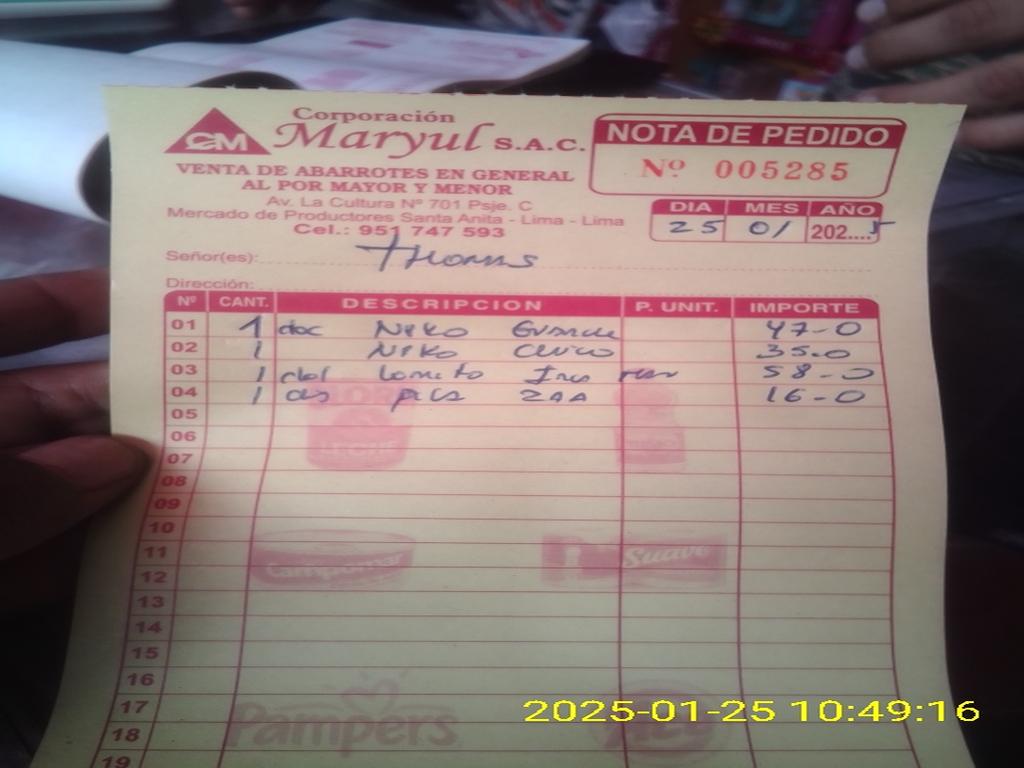 CM
Corporación
Maryul S.A.C.
VENTA DE ABARROTES EN GENERAL
AL POR MAYOR Y MENOR
Av. La Cultura Nº 701 Psje. C
Mercado de Productores Santa Anita - Lima - Lima
Cel.: 951 747 593
NOTA DE PEDIDO
Nº 005285
DIA MES AÑO
25 01 202....5
Señor(es): Thomas
Dirección:
Nº CANT. DESCRIPCION P. UNIT. IMPORTE
01 1 doc 47-0
02 1 35-0
03 1 Lomito 58-0
04 1 16-0
05
06
07 LECHE
08
09
10
11 Campomar Suave
12
13
14
15
16
17 Pampers
18
19
2025-01-25 10:49:16